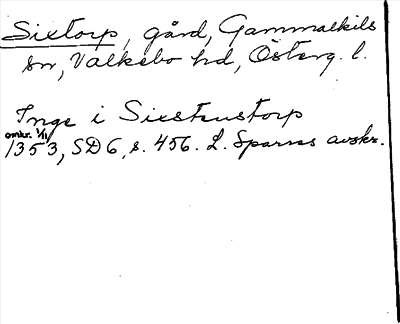 Sixtorp, gård, Gammalkils
sn, Valkebo hd, Österg. l.
Inge i Sixstenstorp
omkr. 1/11
1353, SD 6, s. 456. L. Sparres avskr.